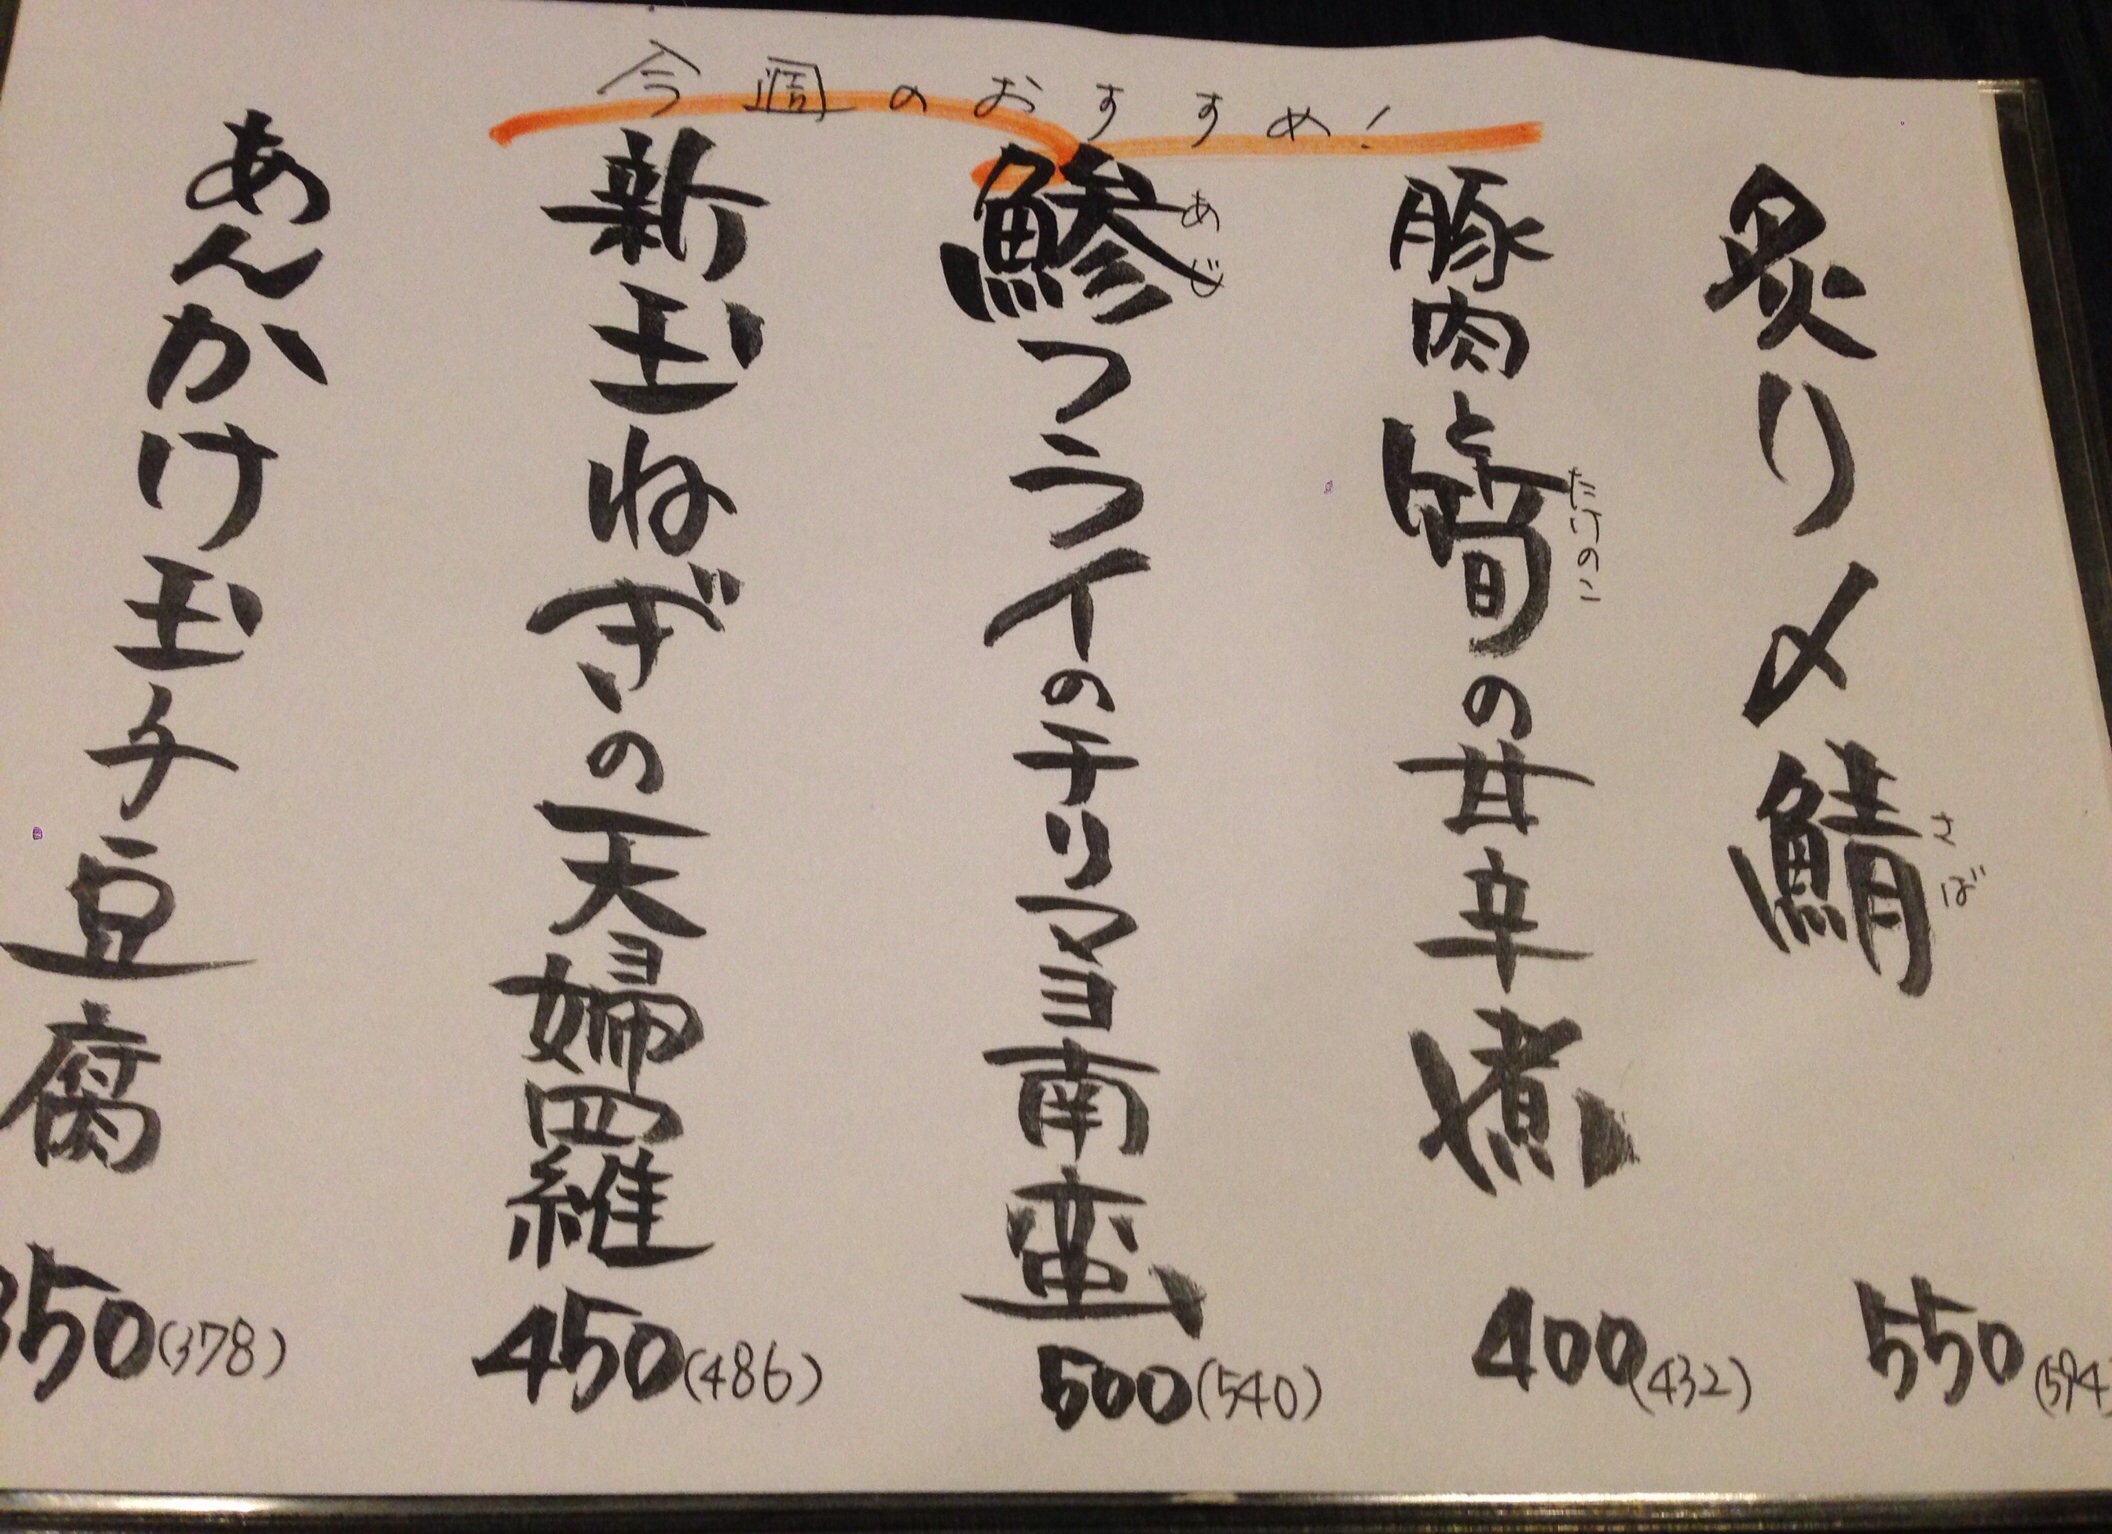 今週のおすすめ!
炙り〆鯖
さば
550(594)
豚肉と筍の甘辛煮
たけのこ
400(432)
鯵フライのチリマヨ南蛮
あじ
500(540)
新玉ねぎの天婦羅
450(486)
あんかけ玉チ豆腐
350(378)